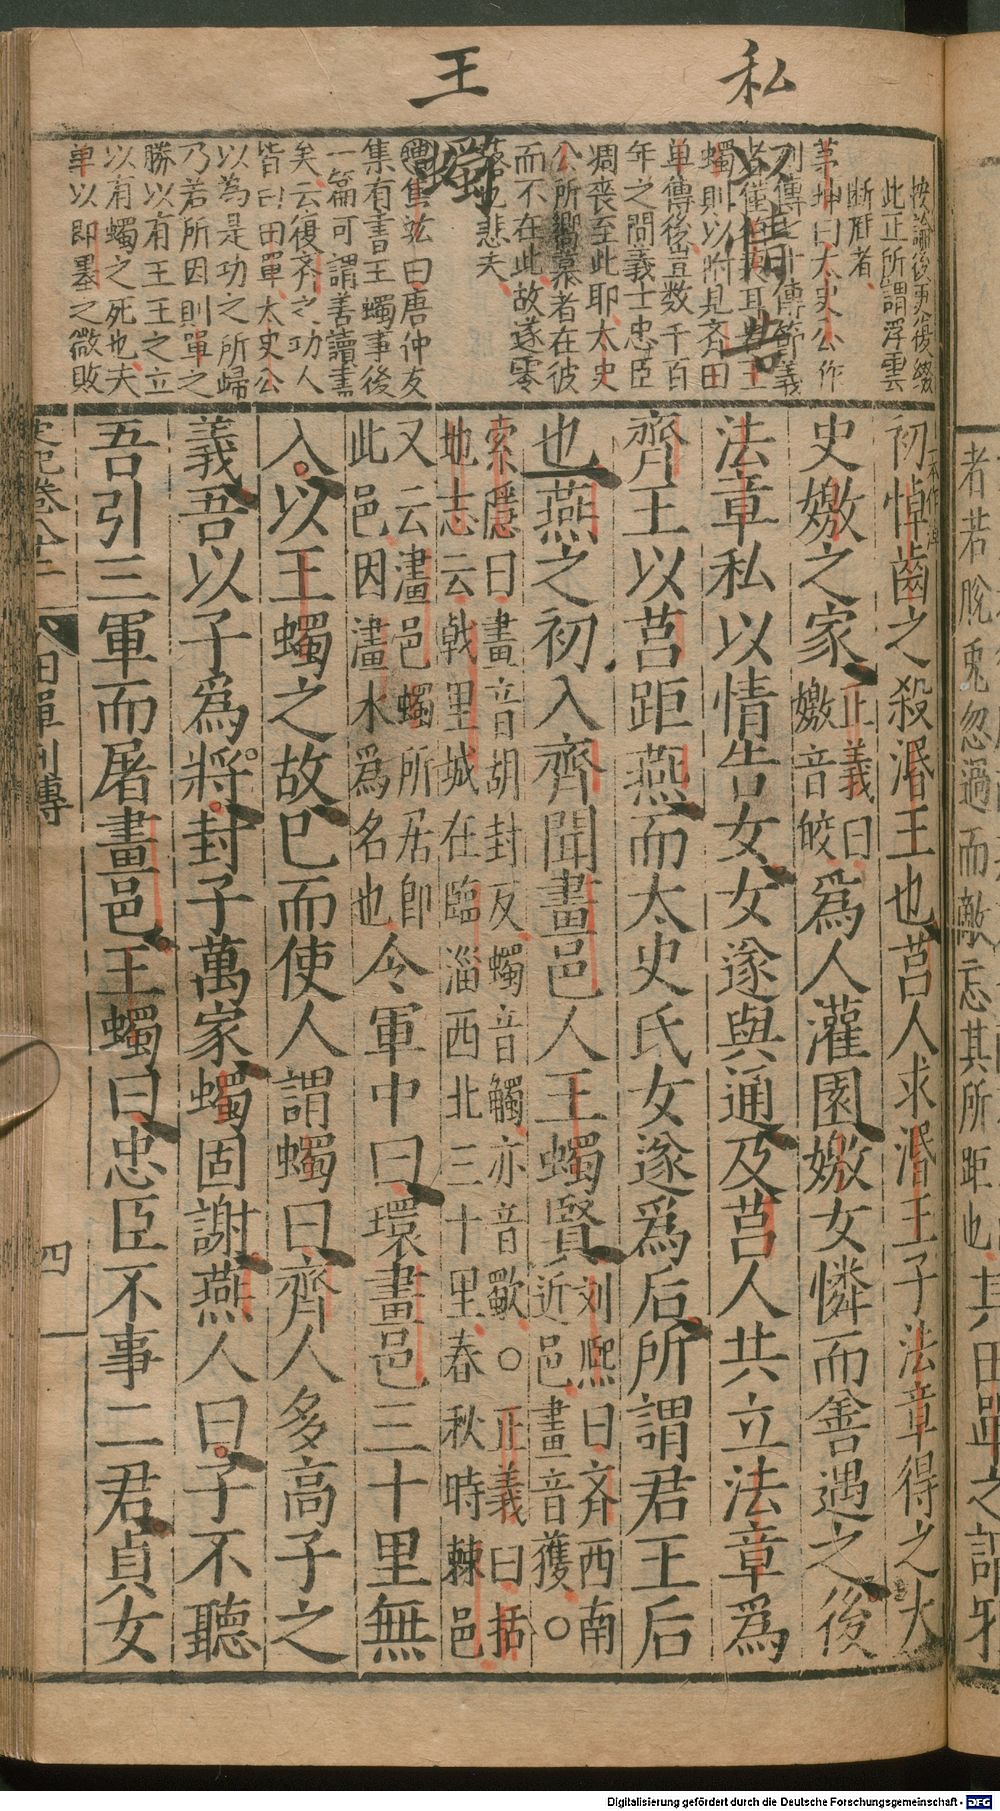 私
王
以情告
蠋
按論後更復綴
此正所謂浮雲
断雁者
茅坤曰太史公作
蠋則以附見齐田
单傳後豈数千百
年之間義士忠臣
凋丧至此耶太史
公所嚮慕者在彼
而不在此故遂零
落也悲夫
曰唐仲友
集有書王蠋事後
一篇可謂善讀書
矣云復齐之功人
皆曰田單太史公
以為是功之所歸
乃若所因則單之
勝以有王王之立
以有蠋之死也夫
单以即墨之微敗
初悼齒之殺湣王也莒人求湣王子法章得之太
史嬓之家正義曰嬓音皎為人灌園嬓女憐而善遇之後
法章私以情告女女遂與通及莒人共立法章為
齊王以莒距燕而太史氏女遂為后所謂君王后
也燕之初入齊聞畫邑人王蠋賢刘熙曰齐西南近邑畫音獲○
索隱曰畫音胡封反蠋音觸亦音歜○正義曰括
地志云戟里城在臨淄西北三十里春秋時棘邑
又云澅邑蠋所居即
此邑因澅水為名也令軍中曰環畫邑三十里無
入以王蠋之故已而使人謂蠋曰齊人多高子之
義吾以子為將封子萬家蠋固謝燕人曰子不聽
吾引三軍而屠畫邑王蠋曰忠臣不事二君貞女
史記卷八十二 田單列傳 四
者若脫兎忽過而敵忘其所距也其田單之謂邪
Digitalisierung gefördert durch die Deutsche Forschungsgemeinschaft - DFG